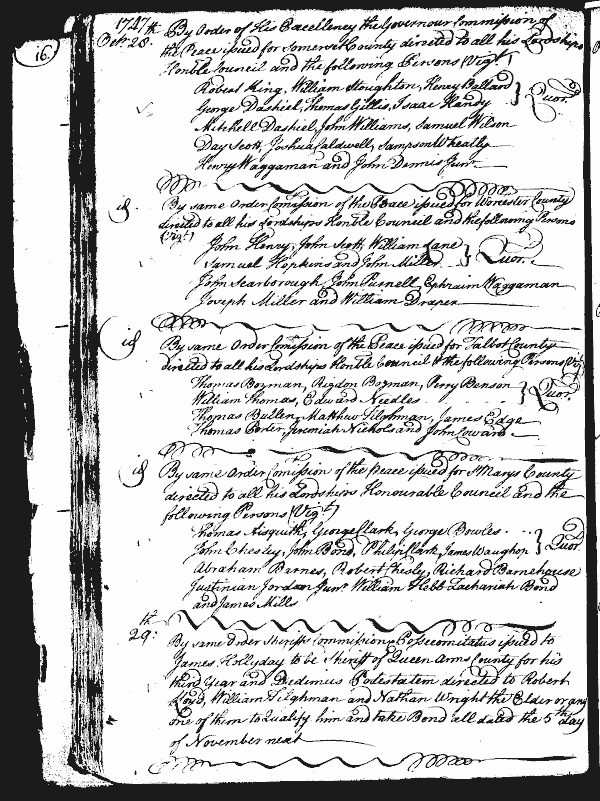 16.
1747
Octr. 28th By Order of His Excellency the Governour Commission of
the Peace issued for Somerset County directed to all his Lordships
Honble Council and the following Persons Vizt.
Robert King, William Stoughton, Henry Ballard
George Dashiel, Thomas Gillis, Isaac Handy } Quor.
Mitchell Dashiel, John Williams, Samuel Wilson
Day Scott, Joshua Caldwell, Sampson Wheatly
Henry Waggaman and John Dennis Junr.
id By same Order Comission of the Peace issued for Worcester County
directed to all his Lordships Honble Council and the following Persons
(Vizt)
John Henry, John Scott, William Lane
Samuel Hopkins and John Miller } Quor.
John Scarborough John Purnell Ephraim Waggaman
Joseph Miller and William Draper
id By same Order Comission of the Peace issued for Talbot County
directed to all his Lordships Honble Council & the following Persons Vizt
Thomas Bozman, Risdon Bozman, Perry Benson
William Thomas, Edward Needles } Quor.
Thomas Bullen, Matthew Tilghman, James Edge
Thomas Porter Jeremiah Nichols and John Coward
id By same Order Comission of the Peace issued for St Marys County
directed to all his Lordships Honourable Council and the
following Persons (Vizt)
Thomas Aisquith, George Clark, George Bowles
John Chesley, John Bond, Philip Clark, James Waughop } Quor.
Abraham Barnes, Robert Chesley, Richard Barnehouse
Justinian Jordan Junr. William Hebb Zachariah Bond
and James Mills
29th: By same Order Sheriffs Commission & Possecomitatus issued to
James Hollyday to be Sheriff of Queen Anns County for his
third Year and Dedimus Potestatem directed to Robert
Lloyd, William Tilghman and Nathan Wright the Elder or any
one of them to Qualify him and take Bond all dated the 5th day
of November next